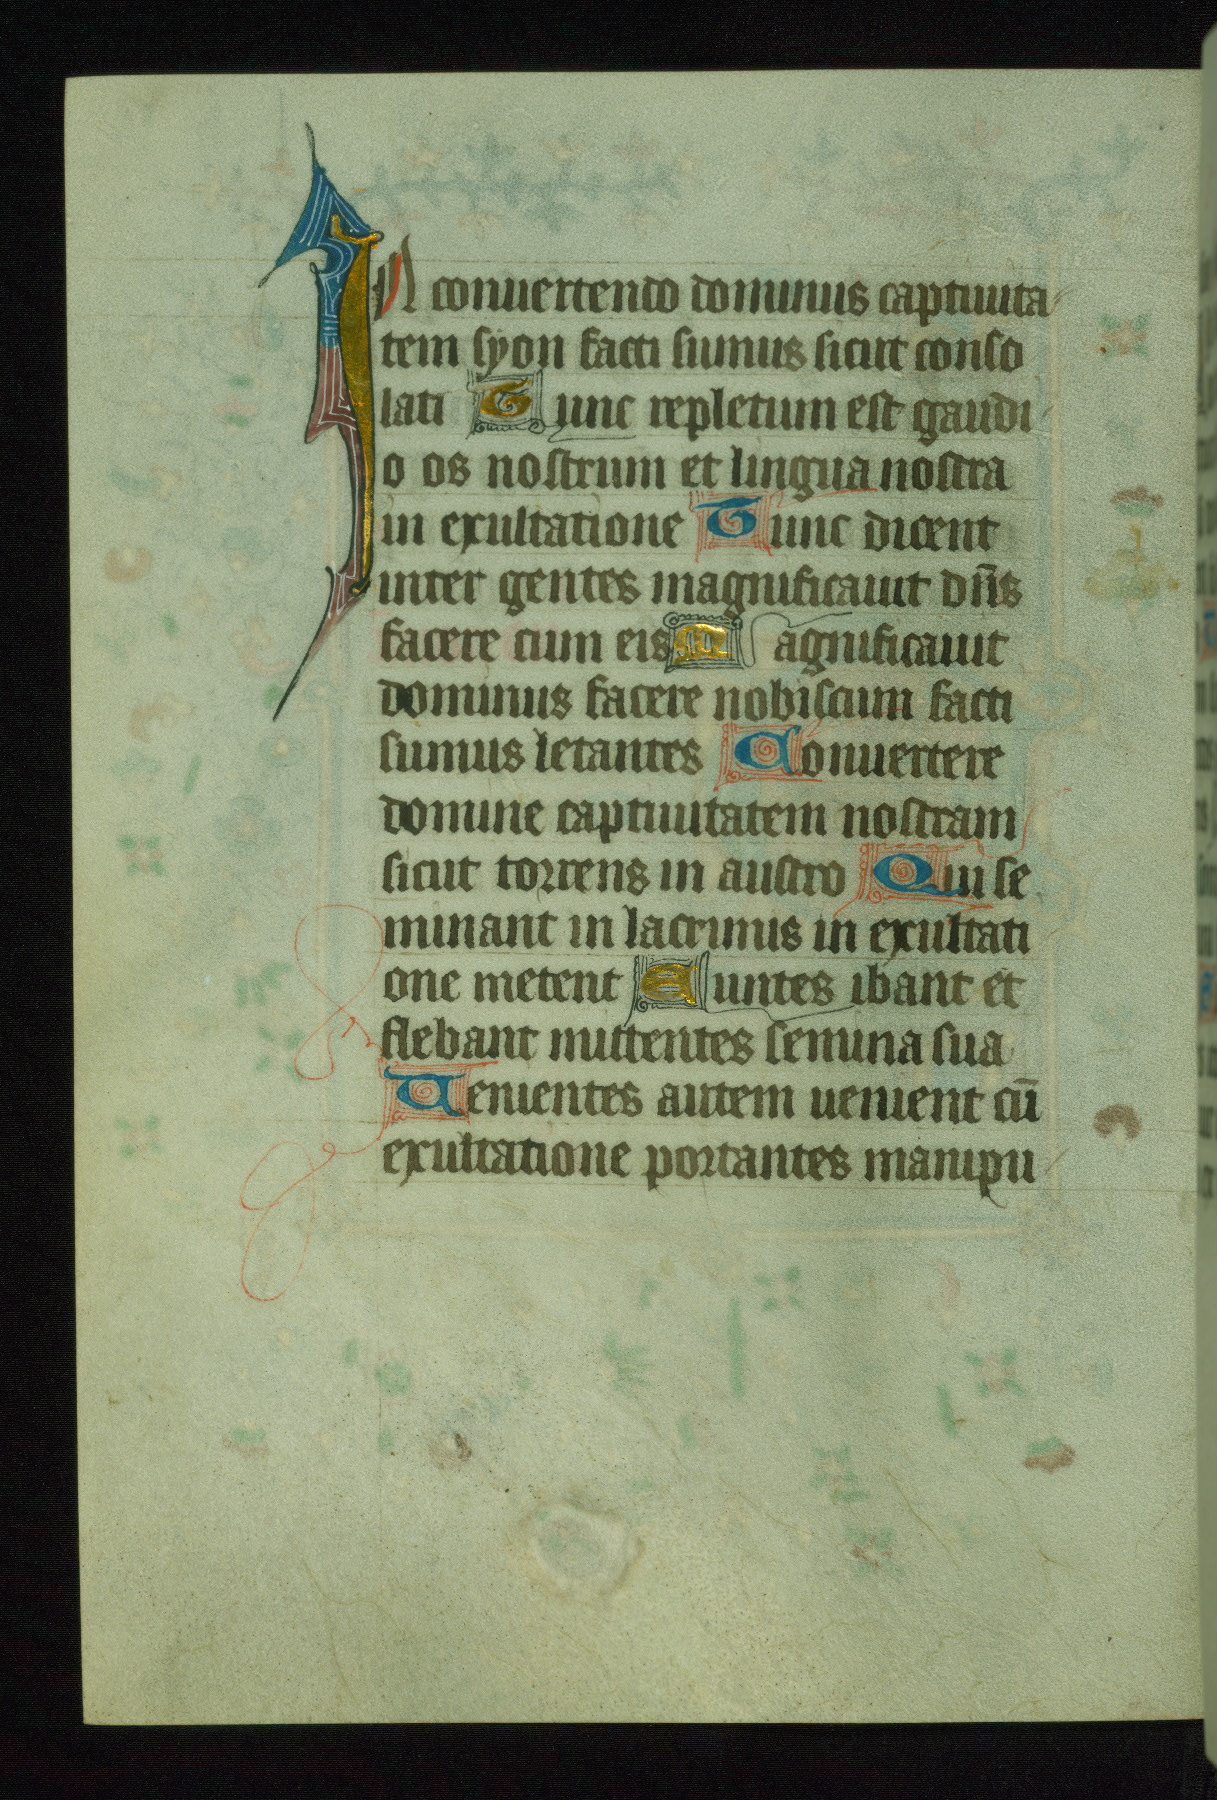 IN conuertendo dominus captiuita
tem syon facti sumus sicut conso
lati Tunc repletum est gaudi
o os nostrum et lingua nostra
in exultatione Tunc dicent
inter gentes magnificauit dn̄s
facere cum eis Magnificauit
dominus facere nobiscum facti
sumus letantes Conuertere
domine captiuitatem nostram
sicut torrens in austro Qui se
minant in lacrimis in exultati
one metent Euntes ibant et
flebant mittentes semina sua
Uenientes autem uenient cū
exultatione portantes manipu